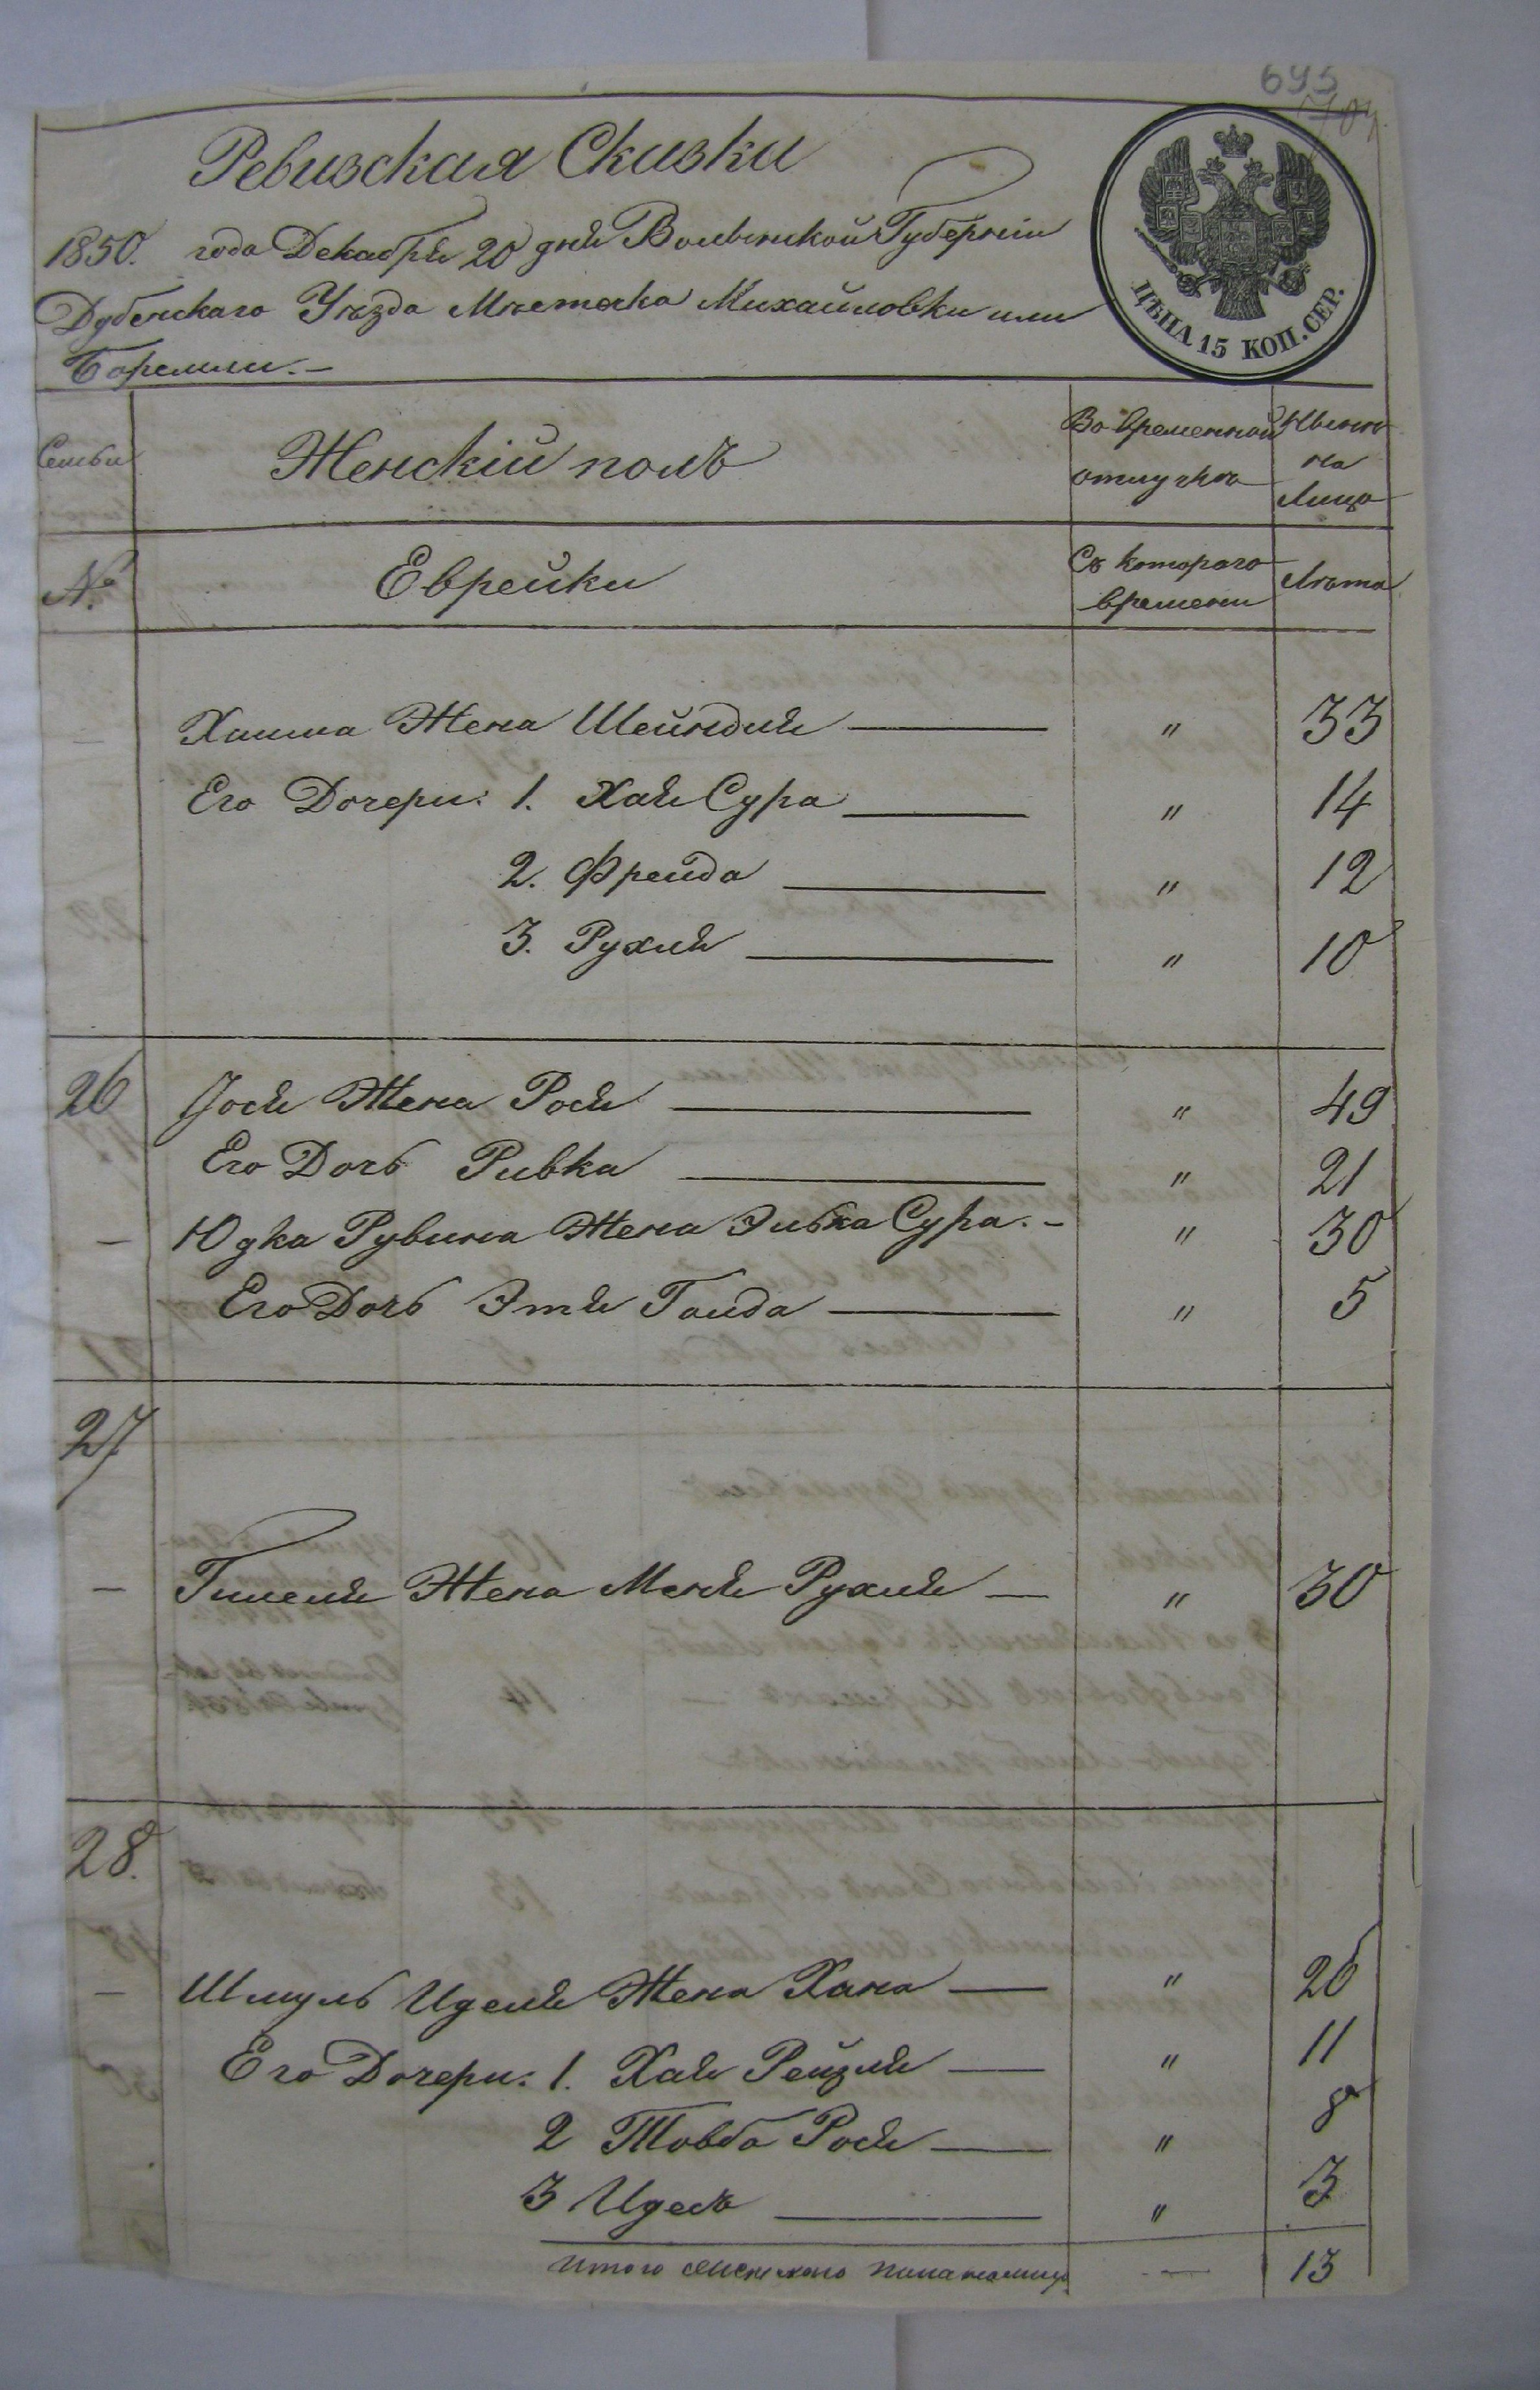 695
Ревизская Сказка
1850. года Декабря 20 дня Волынской Губерніи
Дубенскаго Уѣзда Мѣстечка Михайловки или
Боремли.—
ЦѢНА 15 КОП. СЕР.
Семьи
Женскій полъ
Во временной отлучкѣ
Нынѣ на Лицо
№
Еврейки
Съ котораго времени
Лѣта
Хаима Жена Шейндля — " 33
Его Дочери: 1. Хая Сура — " 14
2. Фрейда — " 12
3. Рухля — " 10
26 Іося Жена Рося — " 49
Его Дочь Ривка — " 21
— Юдка Рувина Жена Элька Сура. — " 30
Его Дочь Этя Гаида — " 5
27
— Гимеля Жена Меня Рухля — " 30
28.
— Шмуль Иделя Жена Хана — " 26
Его Дочери: 1. Хая Рейзля — " 11
2 Товба Рося — " 8
3 Идесъ — " 3
Итого женскаго пола налицо — 13